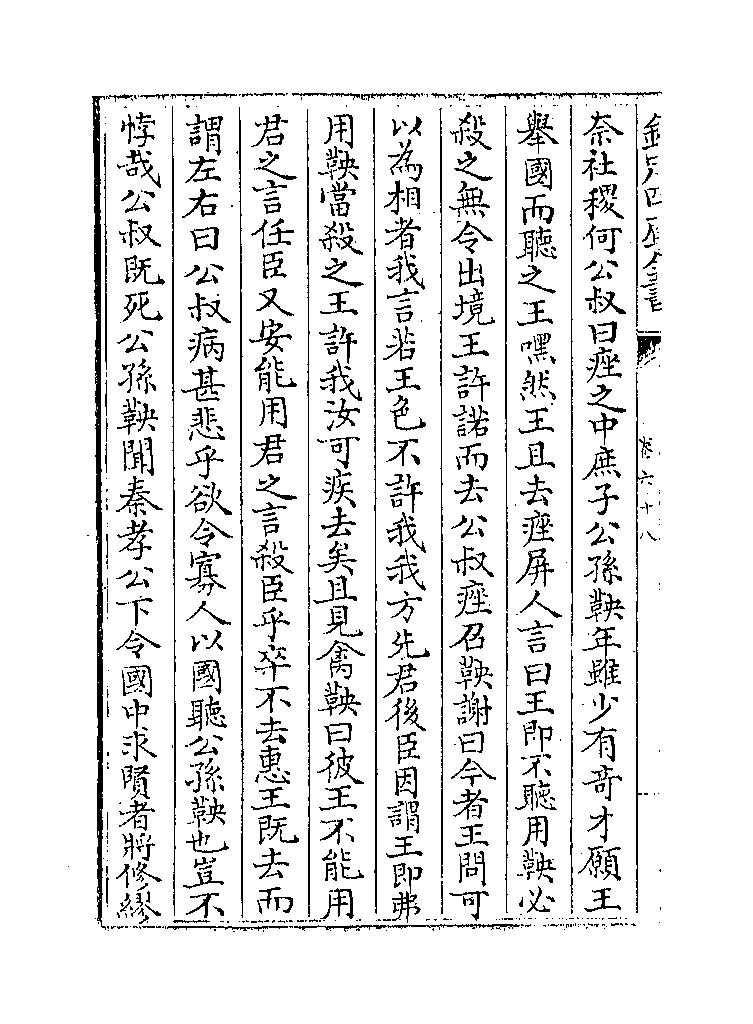 欽定四庫全書
卷六十八
奈社稷何公叔曰痤之中庶子公孫鞅年雖少有奇才願王
舉國而聽之王嘿然王且去痤屏人言曰王即不聽用鞅必
殺之無令出境王許諾而去公叔痤召鞅謝曰今者王問可
以為相者我言若王色不許我我方先君後臣因謂王即弗
用鞅當殺之王許我汝可疾去矣且見禽鞅曰彼王不能用
君之言任臣又安能用君之言殺臣乎卒不去惠王既去而
謂左右曰公叔病甚悲乎欲令寡人以國聽公孫鞅也豈不
悖哉公叔既死公孫鞅聞秦孝公下令國中求賢者將修繆